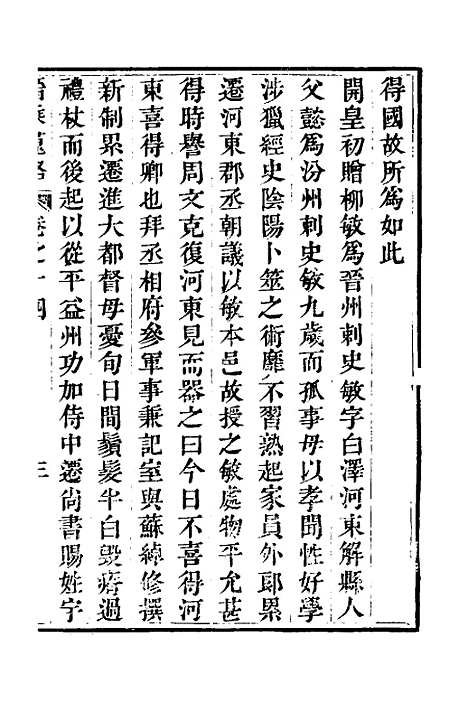 得國故所爲如此
開皇初贈柳敏爲晉州刺史敏字白澤河東解縣人
父懿爲汾州刺史敏九歲而孤事母以孝聞性好學
涉獵經史陰陽卜筮之術靡不習熟起家員外郎累
遷河東郡丞朝議以敏本邑故授之敏處物平允甚
得時譽周文克復河東見而器之曰今日不喜得河
東喜得卿也拜丞相府參軍事兼記室與蘇綽修撰
新制累遷進大都督母憂旬日間鬚髮半白毀瘠過
禮杖而後起以從平益州功加侍中遷尚書賜姓宇
晉乘蒐略 卷之十四 三